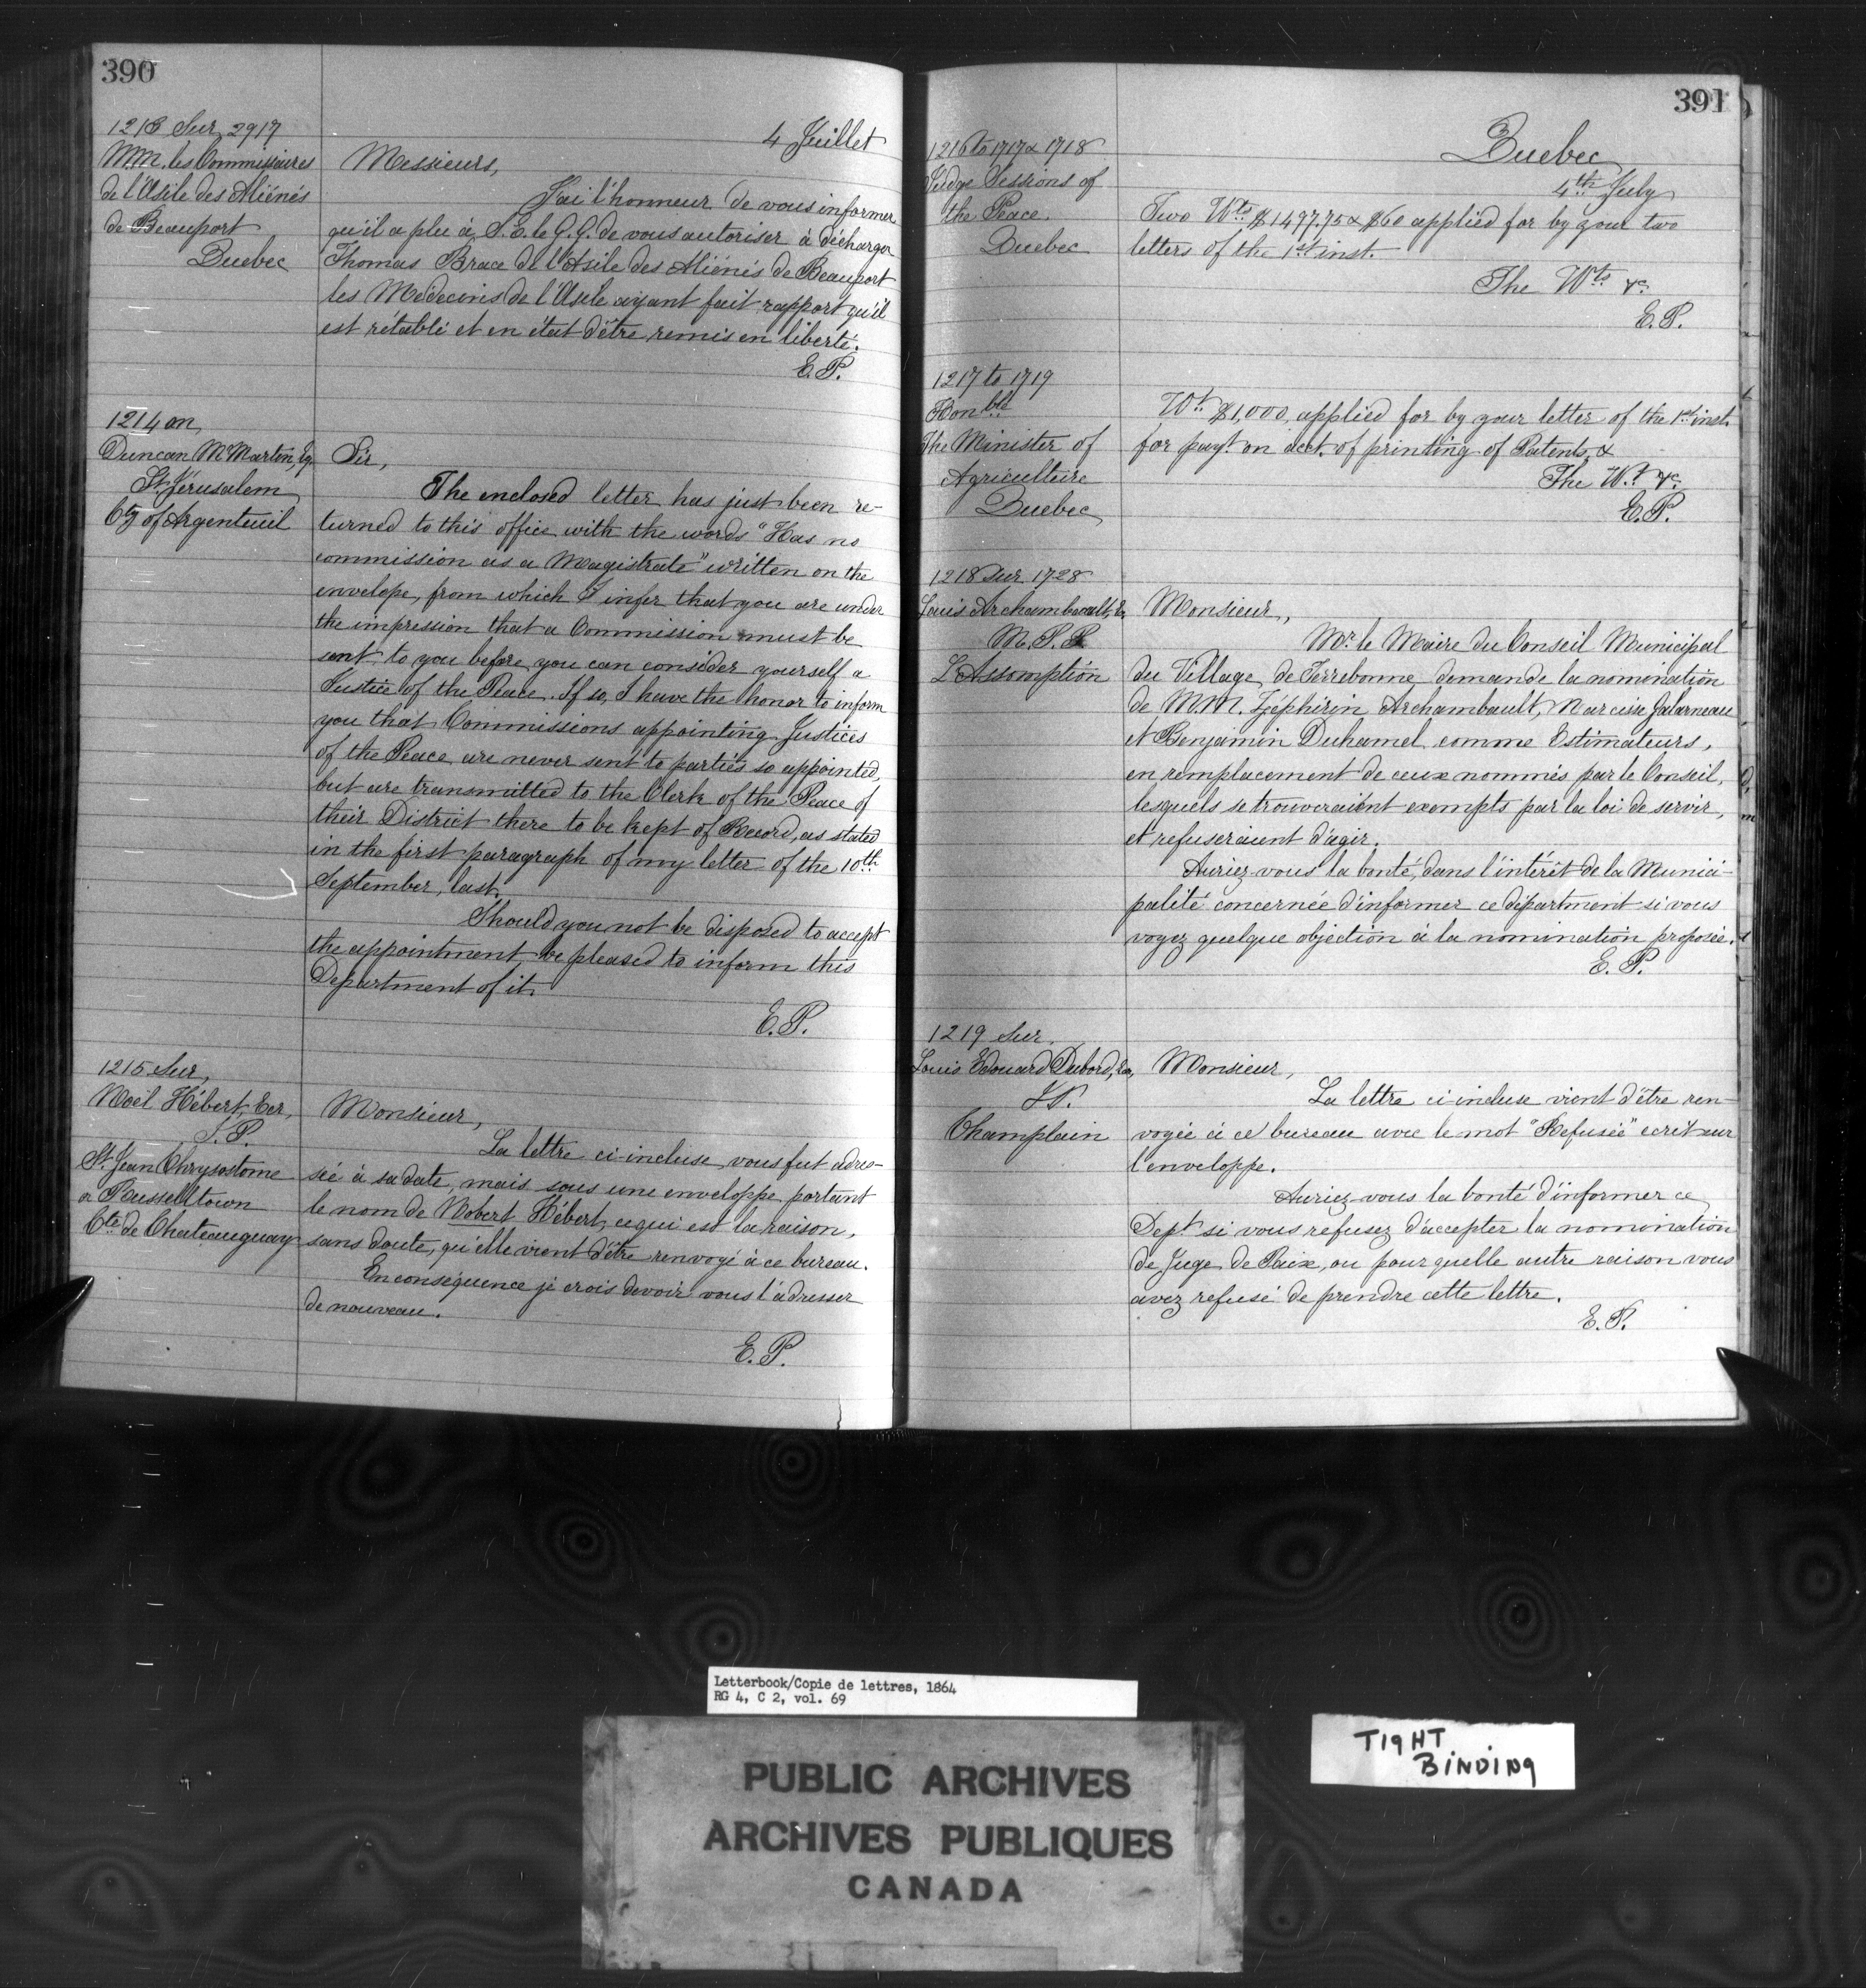 390
4 Juillet
1213 Sur 2917
MM. les Commissaires
de l'Asile des Aliénés
de Beauport
Quebec
Messieurs,
J'ai l'honneur de vous informer
qu'il a plu à S. E. le G. G. de vous autoriser à décharger
Thomas Brace de l'Asile des Aliénés de Beauport
les Medecins de l'Asile ayant fait rapport qu'il
est rétabli et en état d'être remis en liberté.
E. P.
1214 on
Duncan McMartin, Eq.
St. Jerusalem
Cty of Argenteuil
Sir,
The enclosed letter has just been re-
turned to this office with the words "Has no
commission as a Magistrate" written on the
envelope, from which I infer that you are under
the impression that a Commission must be
sent to you before you can consider yourself a
Justice of the Peace. If so, I have the honor to inform
you that Commissions appointing Justices
of the Peace are never sent to parties so appointed,
but are transmitted to the Clerk of the Peace of
their District there to be kept of Record, as stated
in the first paragraph of my letter of the 10th
September, last.
Should you not be disposed to accept
the appointment be pleased to inform this
Department of it.
E. P.
1215 Sur,
Noël Hébert, Ecr,
J. P.
St. Jean Chrysostome
or Russelltown
Cté de Chateauguay
Monsieur,
La lettre ci-incluse, vous fut adres-
sée à sa date, mais sous une enveloppe portant
le nom de Nobert Hébert, ce qui est la raison,
sans doute, qu'elle vient d'être renvoyé à ce bureau.
En conséquence je crois devoir vous l'adresser
de nouveau.
E. P.
391
Quebec
4th July
1216 to 1717 & 1718
Judge Sessions of
the Peace.
Quebec
Two Wts $1497.75 & $60 applied for by your two
letters of the 1st inst.
The Wts &c.
E. P.
1217 to 1719
Honble
The Minister of
Agriculture
Quebec
Wt. $1,000, applied for by your letter of the 1st inst.
for payt. on acct. of printing of Patents, &
The Wt. &c.
E. P.
1218 Sur 1728
Louis Archambault, Er,
M. P. P.
L'Assomption
Monsieur,
Mr. le Maire du Conseil Municipal
du Village de Terrebonne demande la nomination
de M.M. Zéphirin Archambault, Narcisse Galarneau
et Benjamin Duhamel comme Estimateurs,
en remplacement de ceux nommés par le Conseil,
lesquels se trouveraient exempts par la loi de servir,
et refuseraient d'agir.
Auriez-vous la bonté, dans l'intérêt de la Munici-
palité concernée d'informer ce département si vous
voyez quelque objection à la nomination proposée.
E. P.
1219 Sur.
Louis Edouard Dubord, Er,
J.P.
Champlain
Monsieur,
La lettre ci-incluse vient d'être ren-
voyée à ce bureau avec le mot "Refusée" ecrit sur
l'enveloppe.
Auriez-vous la bonté d'informer ce
Dept. si vous refusez d'accepter la nomination
de Juge de Paix, ou pour quelle autre raison vous
avez refusé de prendre cette lettre.
E. P.
Letterbook/Copie de lettres, 1864
RG 4, C 2, vol. 69
PUBLIC ARCHIVES
ARCHIVES PUBLIQUES
CANADA
TIGHT
BINDING